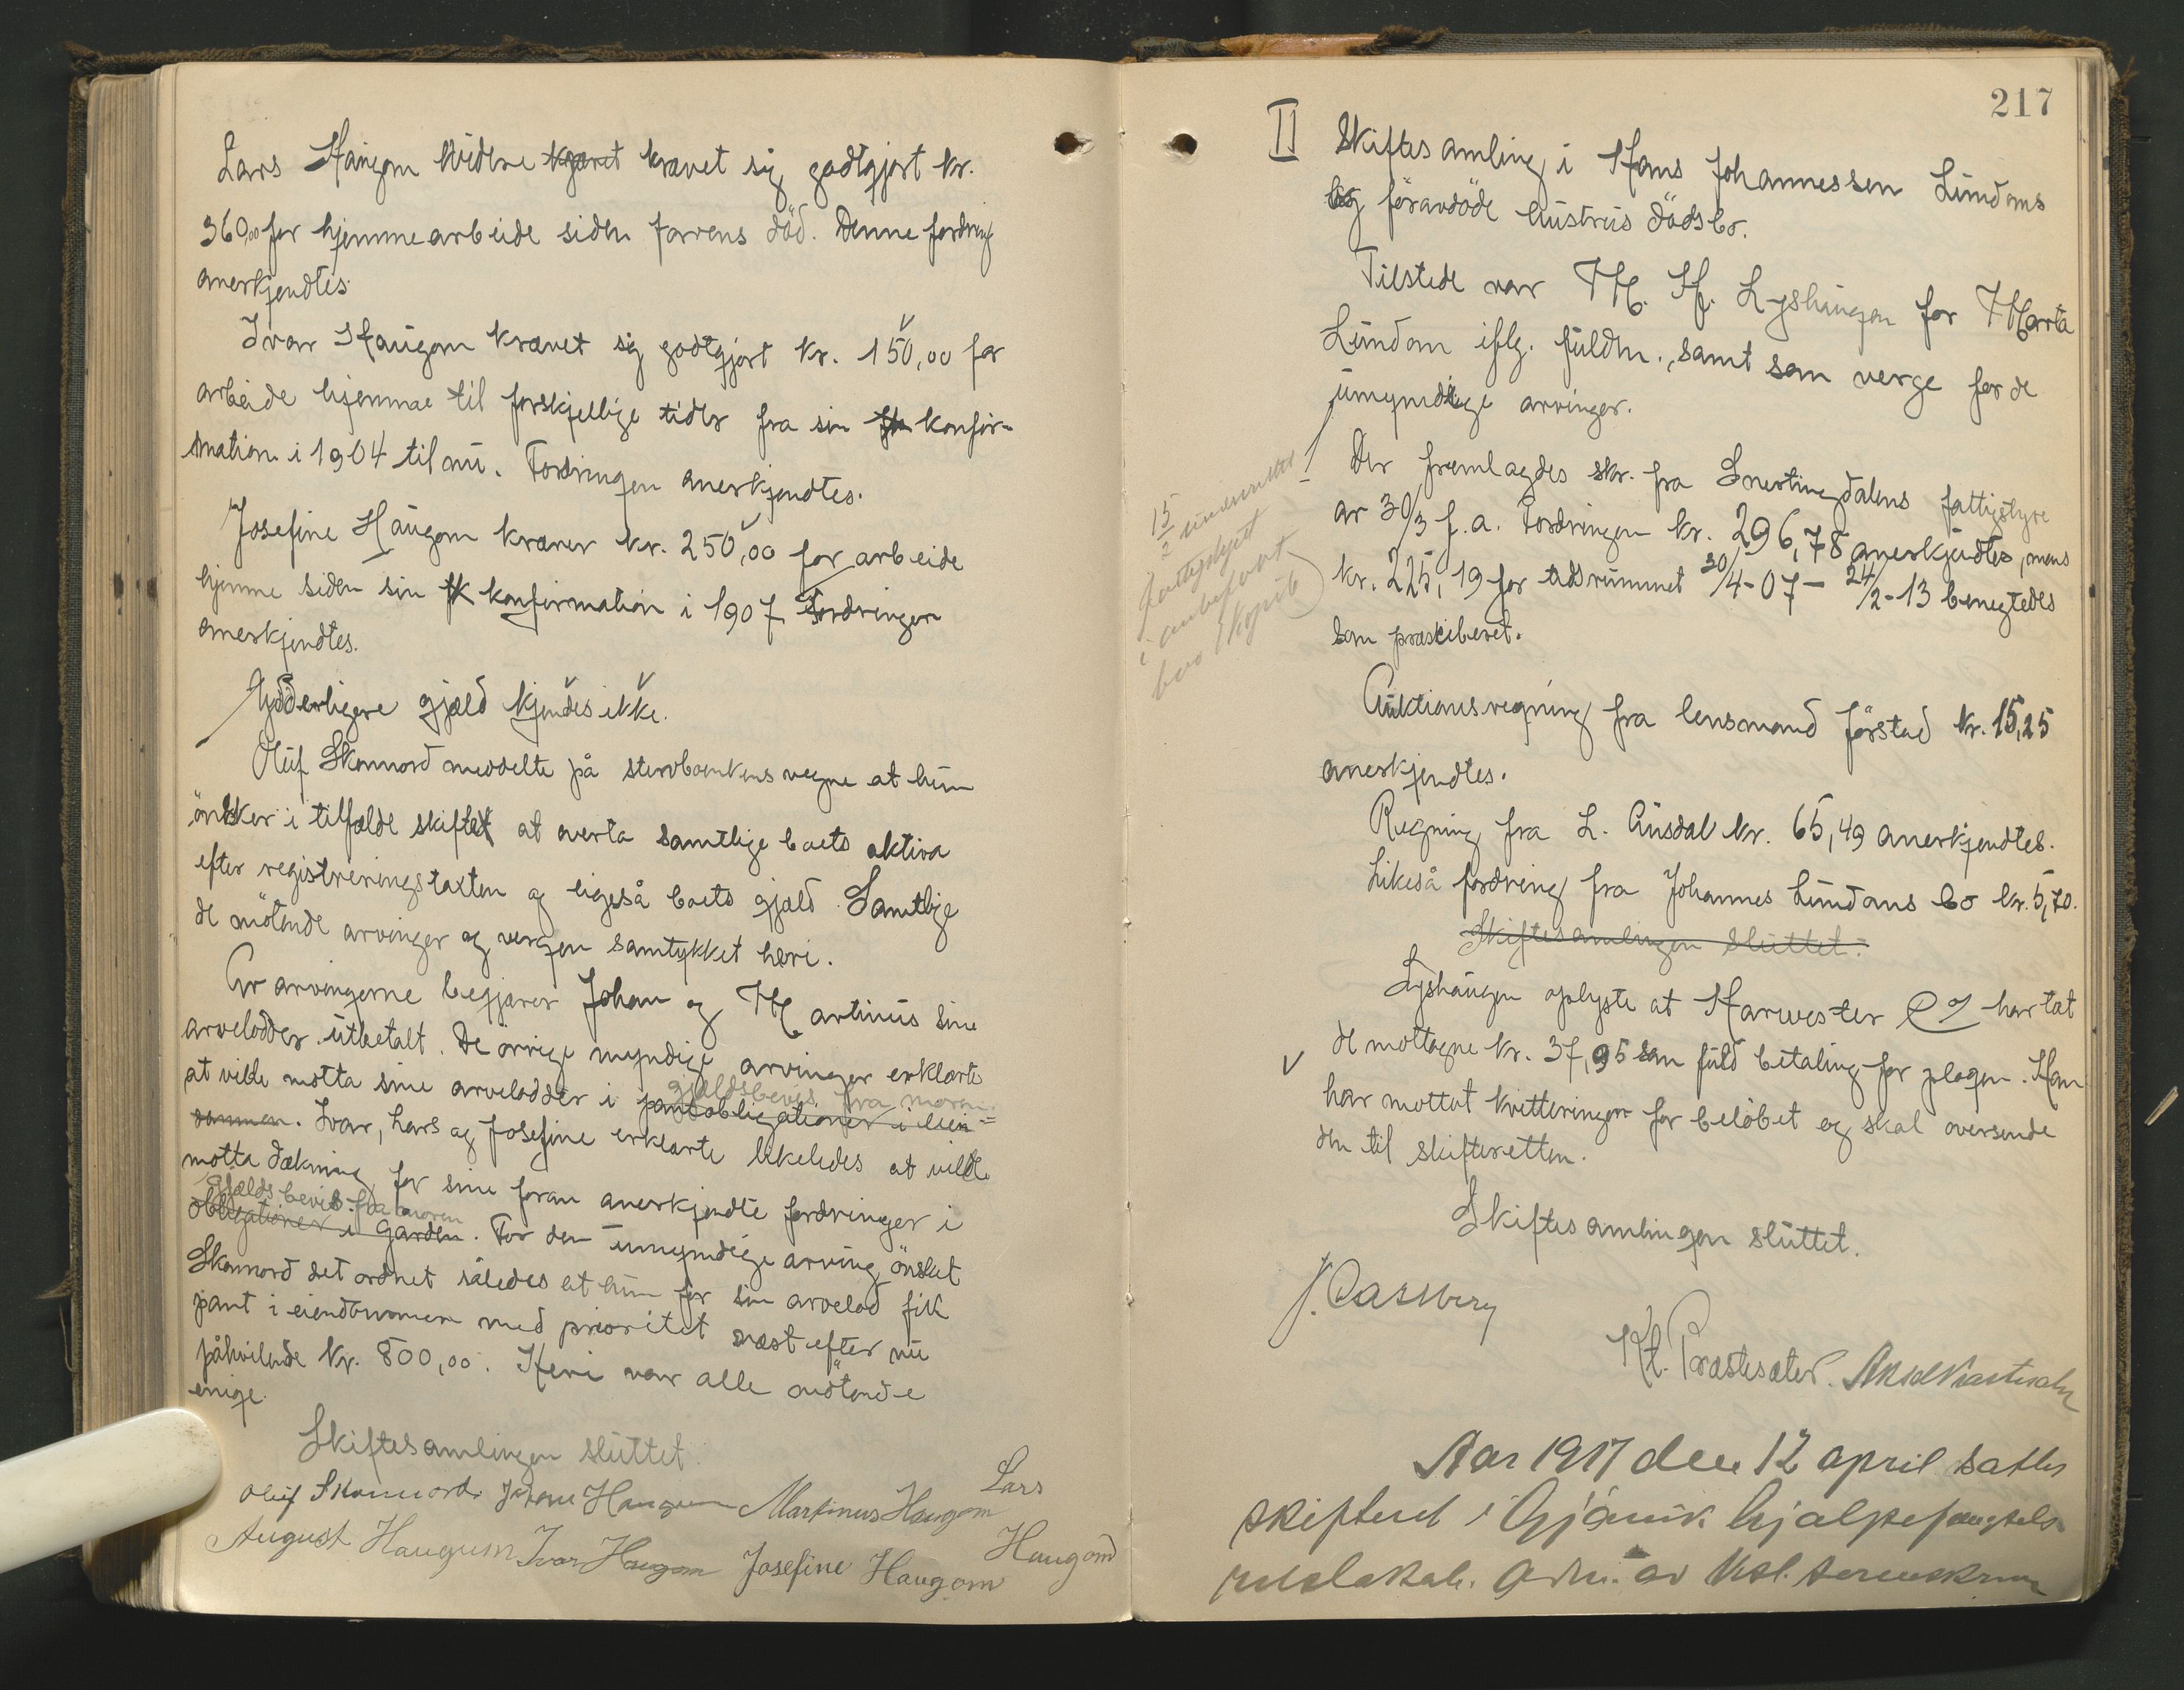 Lars Haugom videre kravet krævet sig godtgjort kr.
360,00 for hjemmearbeide siden farens död. Denne fordring
anerkjendtes.
Ivar Haugom krævet sig godtgjort kr. 150,00 for
arbeide hjemme til forskjellige tider fra sin konfir-
mation i 1904 til nu. Fordringen anerkjendtes.
Josefine Haugom kræver kr. 250,00 for arbeide
hjemme siden sin konfirmation i 1907 Fordringen
anerkjendtes.
Ydderligere gjæld kjendes ikke.
Oluf Skonnord meddelte på stervboenkens vegne at hun
önsker i tilfælde skiftet at overta samtlige boets aktiva
efter registreringstaxten og ligeså boets gjæld. Samtlige
de mötende arvinger og vergen samtykket heri.
Av arvingerne begjærer Johan og Martinus sine
arvelodder utbetalt. De övrige myndige arvinger erklærte
at ville motta sine arvelodder i pantobligationer i eien-
gjældsbevis fra moren
dommen. Ivar, Lars og Josefine erklærte likeledes at ville
motta dækning for sine foran anerkjendte fordringer i
gjælds bevis fra moren
obligationer i garden. For den umyndige arving önsket
Skonnord det ordnet således at hun for sin arvelod fik
pant i eiendommen med prioritet næst efter nu
påhvilende kr. 800,00. Heri var alle mötende
enige.
Skiftesamlingen sluttet
Oluf Skonnord. Johan Haugom Martinus Haugom Lars
August Haugum Ivar Haugom Josefine Haugom Haugom
217
II Skiftesamling i Hans Johannessen Lundoms
og föravdöde hustrus dödsbo.
Tilstede var M. H. Lyshaugen for Marta
Lundom iflg. fuldm., samt som verge for de
umyndige arvinger.
Der fremlagdes skr. fra Snertingdalens fattigstyre
av 30/3 f. a. Fordringen kr. 296,78 anerkjendtes, mens
kr. 225,19 for tidsrummet 30/4-07 - 24/2-13 benegtedes
som præsciberet.
15/2 underrettet
fattigstyret
i anbefalt
brev (kopib)
Auktionsregning fra lensmandFörstad kr. 15,25
anerkjendtes.
Regning fra L. Ausdal kr. 65,49 anerkjendtes.
Likeså fordring fra Johannes Lundoms bo kr. 5,70.
Skiftesamlingen sluttet.
Lyshaugen oplyste at Harvester Co har tat
de mottagne kr. 37,95 som fuld betaling for plogen. Han
har mottat kvitteringen for belöbet og skal oversende
den til skifteretten.
Skiftesamlingen sluttet.
Kr. Præstesæter.
Aar 1917 den 12 april sattes
skifteret i Gjövik hjælpefængsels
retslokale. Adm. av ksl. sorenskriver